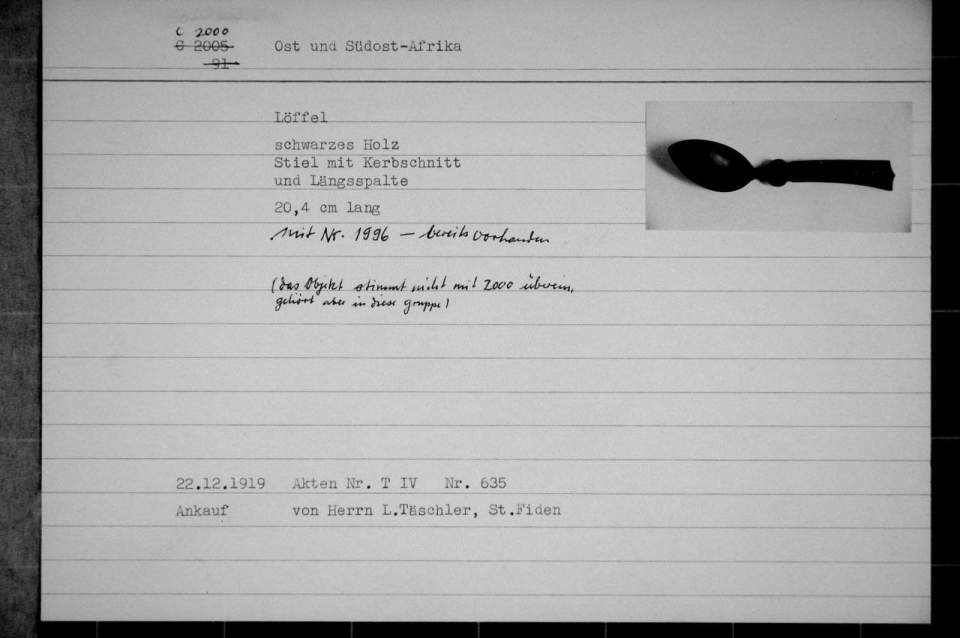 C 2000
C 2005 Ost und Südost-Afrika
91
Löffel
schwarzes Holz
Stiel mit Kerbschnitt
und Längsspalte
20,4 cm lang
mit Nr. 1996 — bereits vorhanden
(das Objekt stimmt nicht mit 2000 überein,
gehört aber in diese Gruppe)
22.12.1919 Akten Nr. T IV Nr. 635
Ankauf von Herrn L.Täschler, St.Fiden